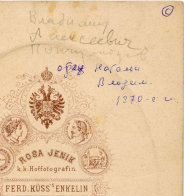 ©
Владимир
Алексеевич
отец Натальи
Владим.
1870-е г.
ROSA JENIK
k.k. Hoffotografin
FERD. KÜSS' ENKELIN